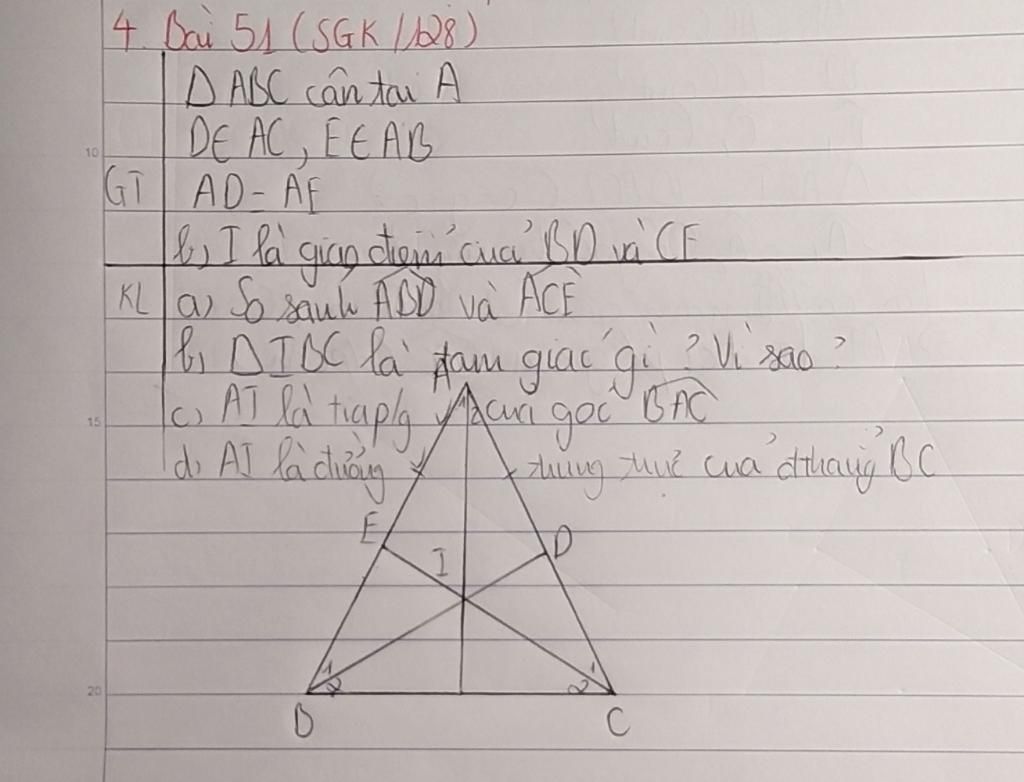 4. Bài 51 (SGK/128)
Δ ABC cân tại A
D∈ AC, E∈ AB
10
GT AD = AE
b) I là giao điểm của BD và CE
KL a) So sánh ABD và ACE
b) Δ IBC là tam giác gì? Vì sao?
A
15 c) AI là tia p/g của góc BAC
1 2
d) AI là đường trung trực của đthẳng BC
E D
I
1 1
20 2 2
B C